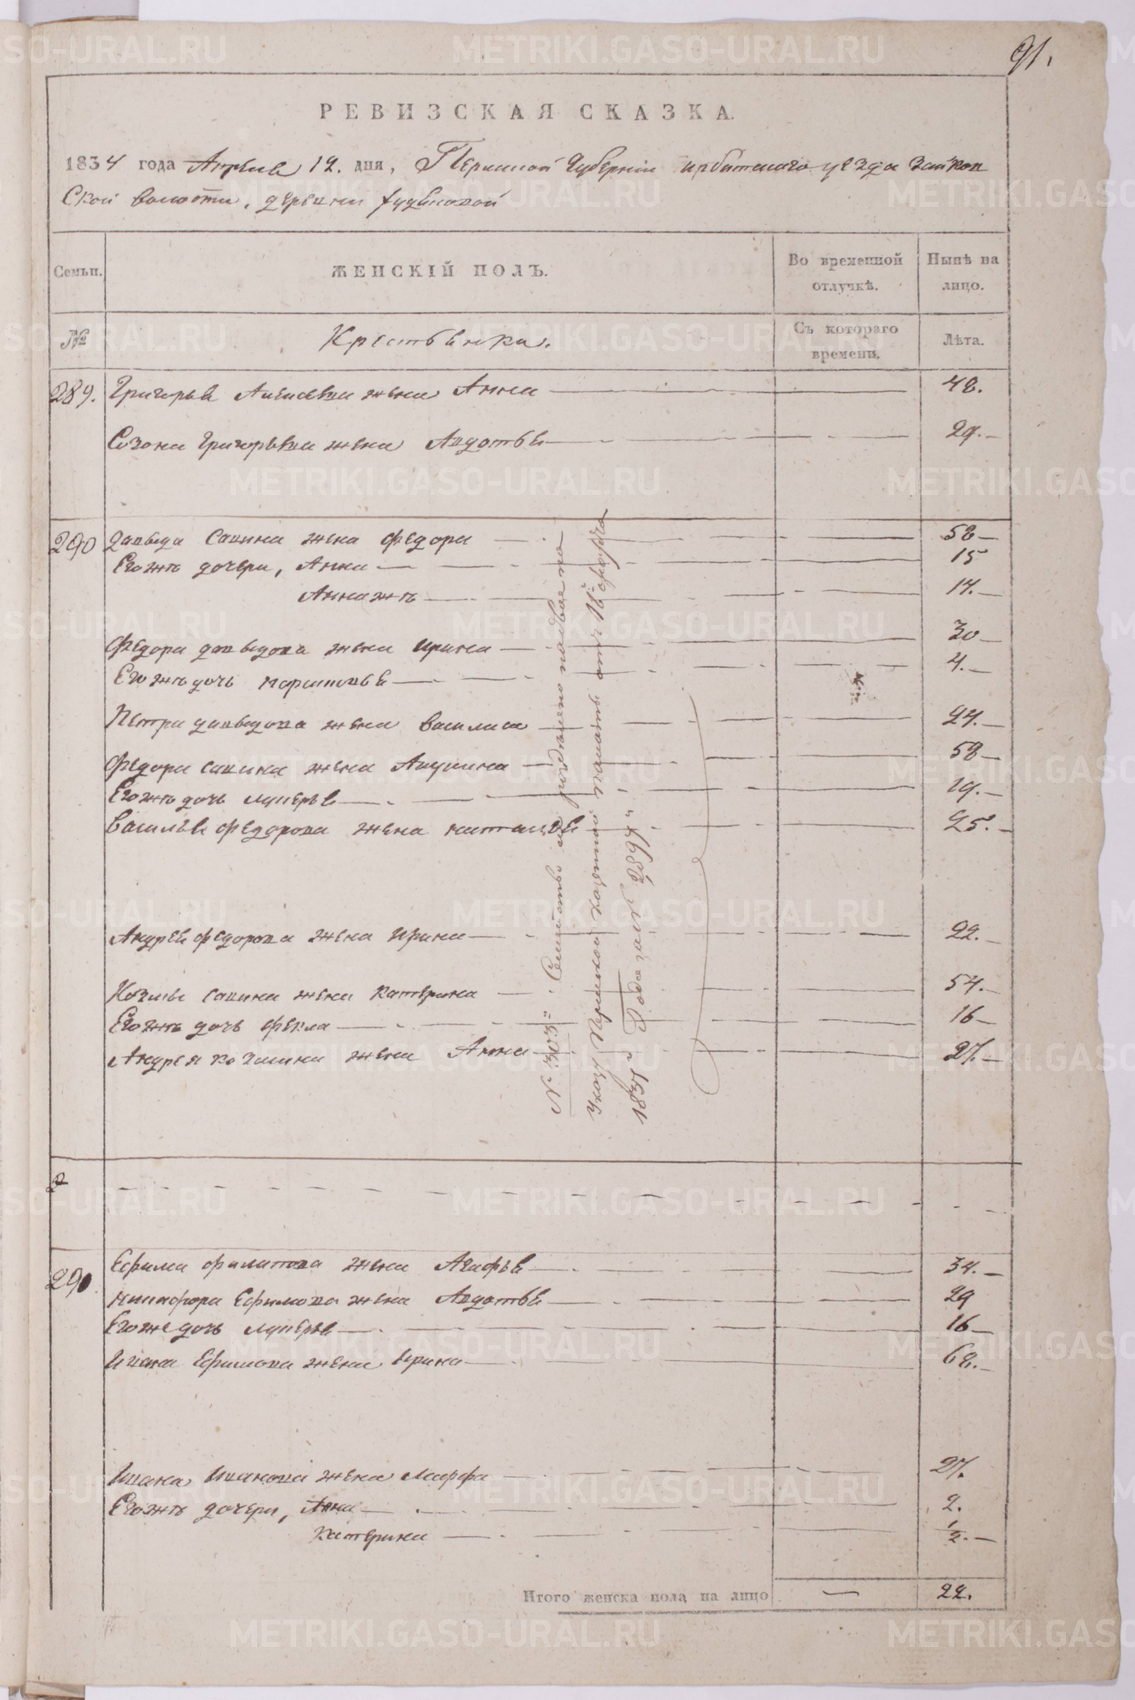 91.
РЕВИЗСКАЯ СКАЗКА.
1834 года Апреля 12. дня, Пермской Губернии Ирбитского уезда Зайков
ской волости, деревни
Семьи.
ЖЕНСКІЙ ПОЛЪ.
Во временной отлучкѣ.
Нынѣ на лицо.
№
Крестьянка.
Съ котораго времени.
Лѣта.
289. Григорья Алексеева жена Анна 48.
Созона Григорьева жена Авдотья 29.
290 Давыда Савина жена Федора 58
Его жъ дочери, Анна 15
Анна жъ 14.
Федора Давыдова жена Ирина 30
Его жъ дочь 4.
Петра Давыдова жена Василиса 27.
Федора Савина жена Акулина 58
Его жъ дочь Лукерья 19.
Василья Федорова жена Наталья 25.
Андрея Федорова жена Ирина 22.
Козмы Савина жена Катерина 54.
Его жъ дочь Фекла 16
Андрея Козмина жена Анна 27.
№ 303" Семейство разделено на двое по
Указу Пермской казенной палаты от 16 февраля
1837 Года за № 2894
2
290 Ефима Филипова жена Агафья 34.
Никифора Ефимова жена Авдотья 29
Его же дочь Лукерья 16
Ивана Ефимова жена Ирина 62.
Ивана Иванова жена Марфа 27.
Его жъ дочери, Анна 2.
Катерина 1/2.
Итого женска пола на лицо — 22.
METRIKI.GASO-URAL.RU